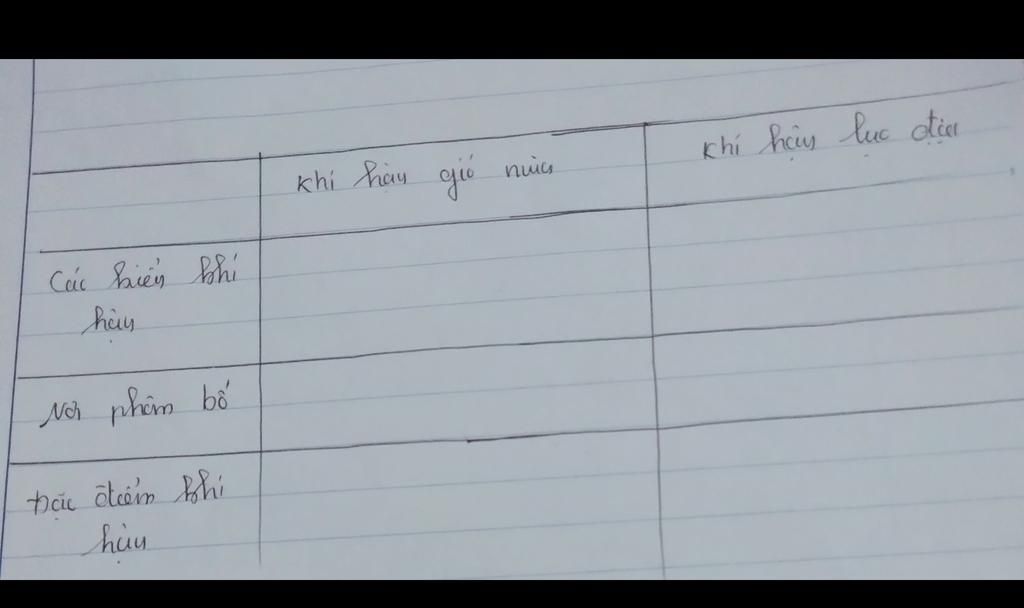 Khí hậu gió mùa
Khí hậu lục địa
Các kiểu khí
hậu
Nơi phân bố
Đặc điểm khí
hậu